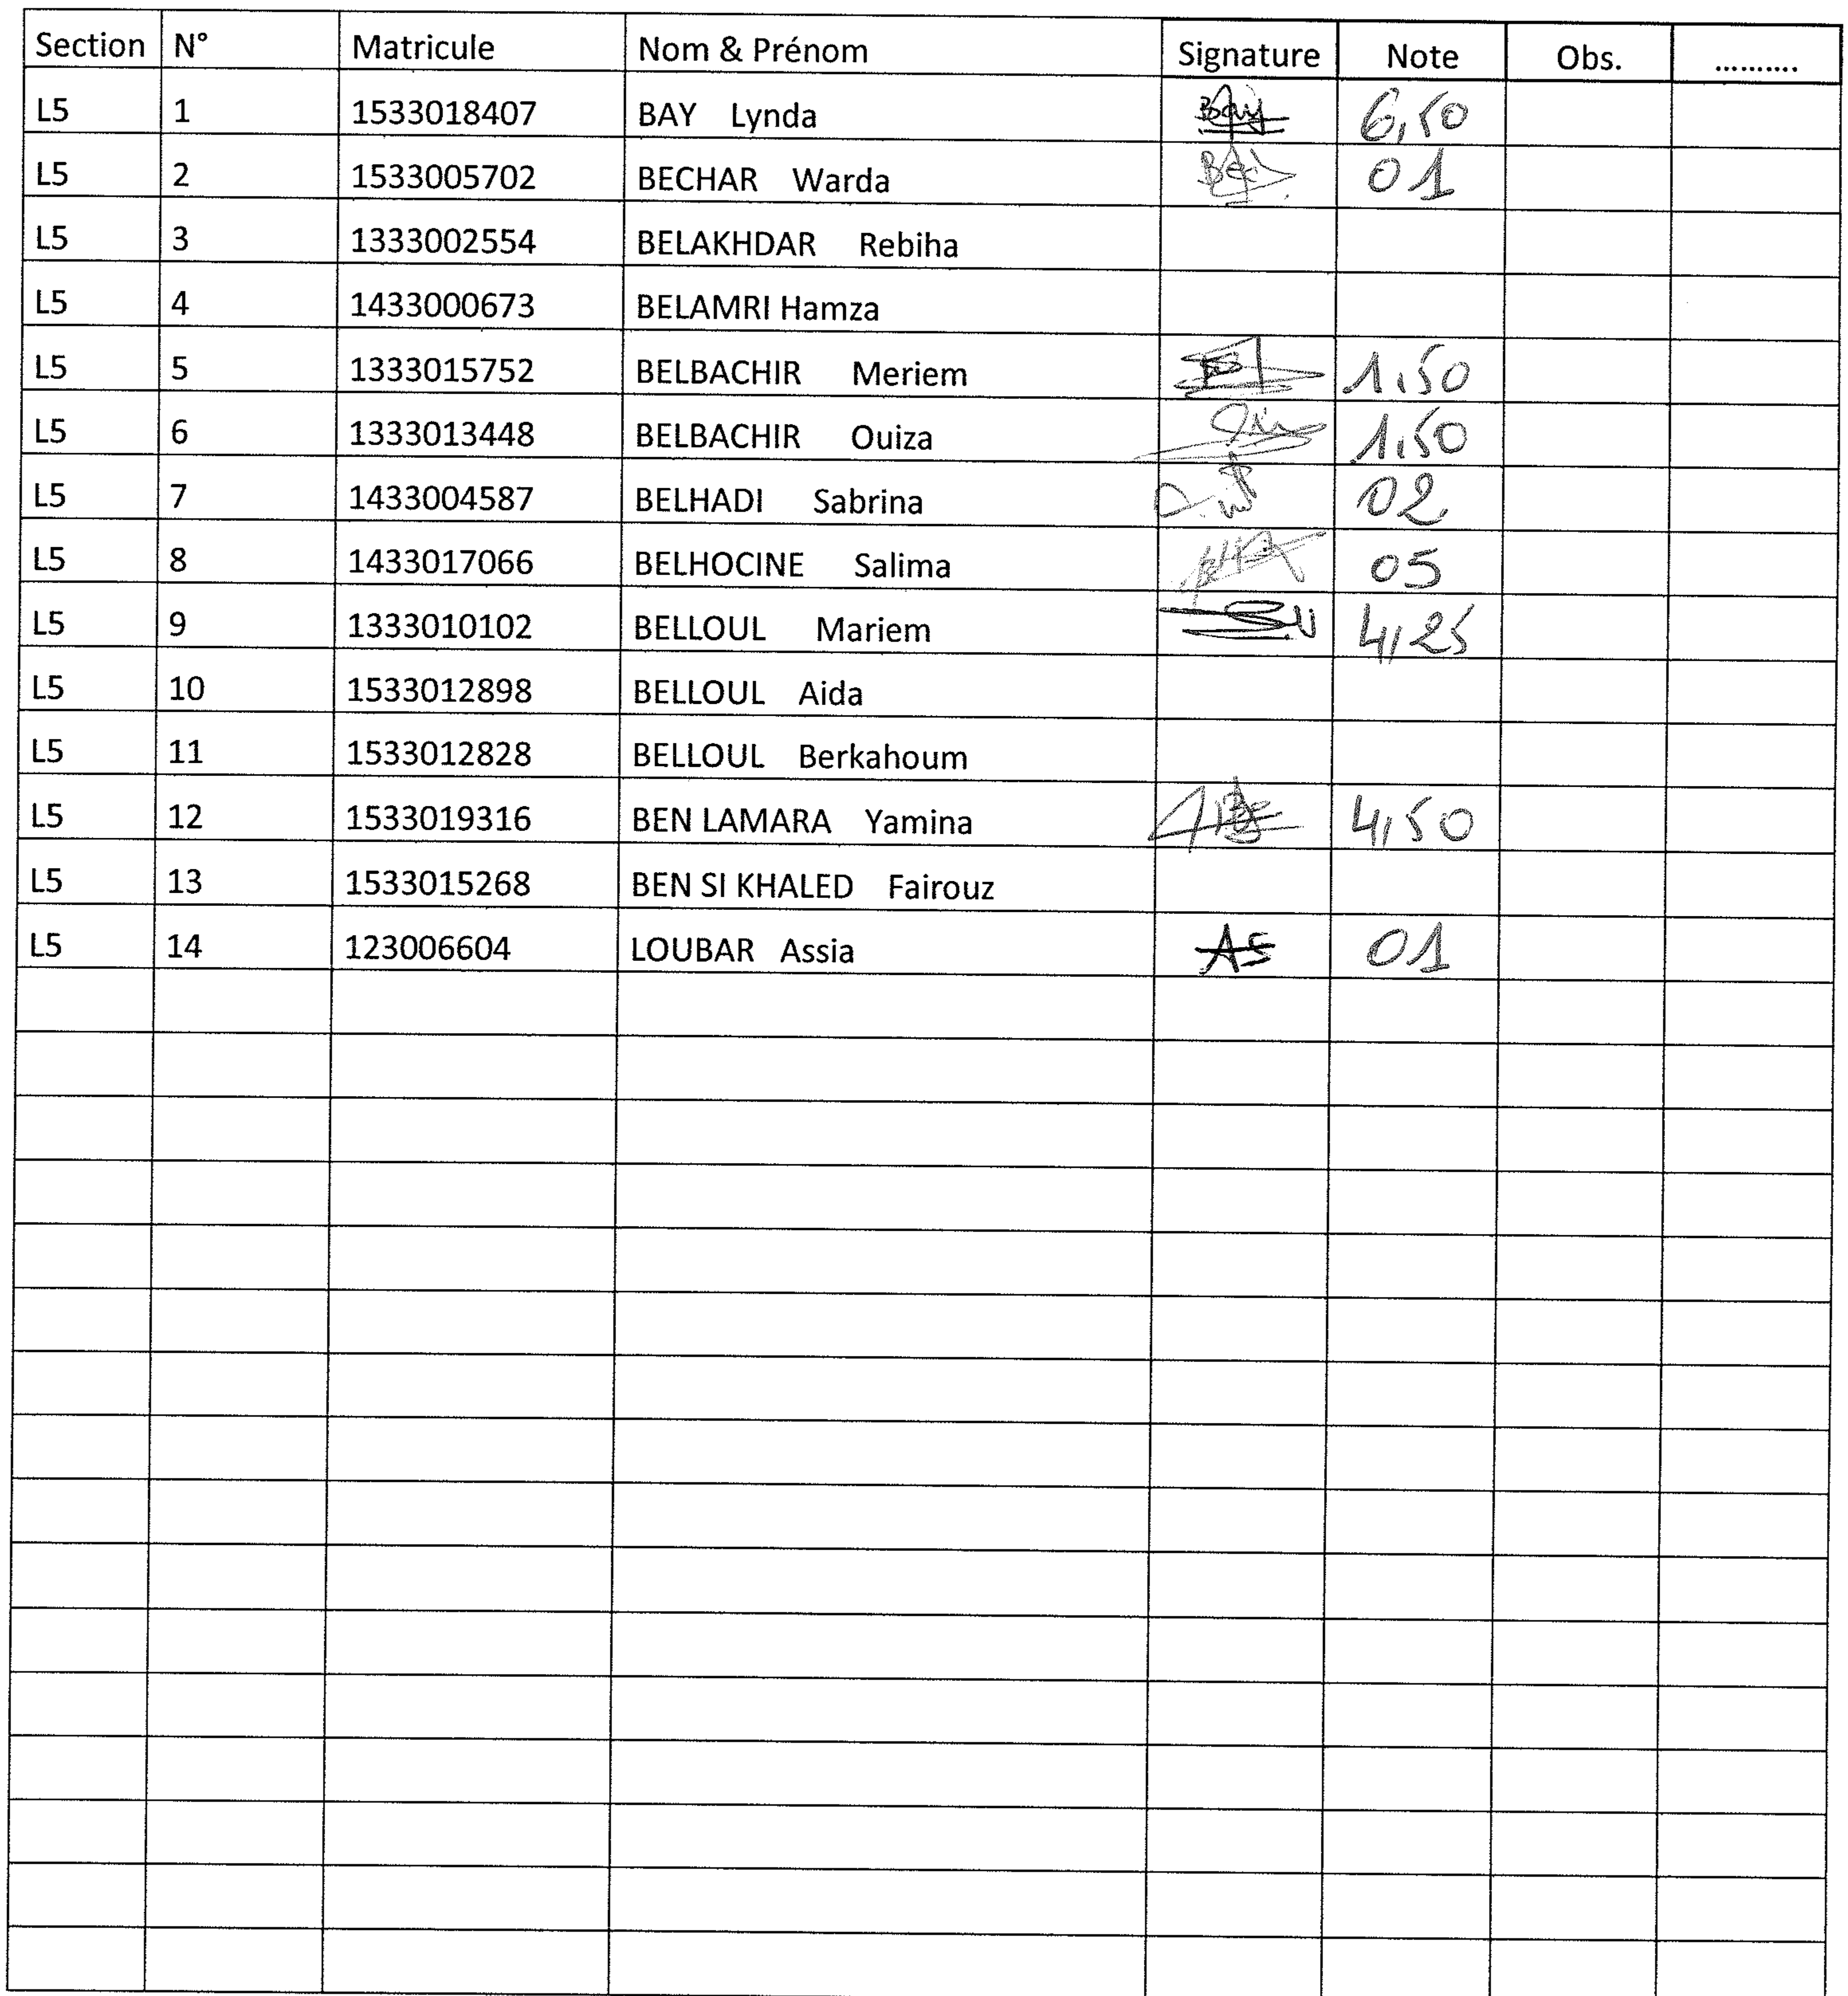 Section N° Matricule Nom & Prénom Signature Note Obs. ..........
L5 1 1533018407 BAY Lynda Bay 6,50
L5 2 1533005702 BECHAR Warda 01
L5 3 1333002554 BELAKHDAR Rebiha
L5 4 1433000673 BELAMRI Hamza
L5 5 1333015752 BELBACHIR Meriem 1,50
L5 6 1333013448 BELBACHIR Ouiza 1,50
L5 7 1433004587 BELHADI Sabrina 02
L5 8 1433017066 BELHOCINE Salima 05
L5 9 1333010102 BELLOUL Mariem 4,25
L5 10 1533012898 BELLOUL Aida
L5 11 1533012828 BELLOUL Berkahoum
L5 12 1533019316 BEN LAMARA Yamina 4,50
L5 13 1533015268 BEN SI KHALED Fairouz
L5 14 123006604 LOUBAR Assia AS 01